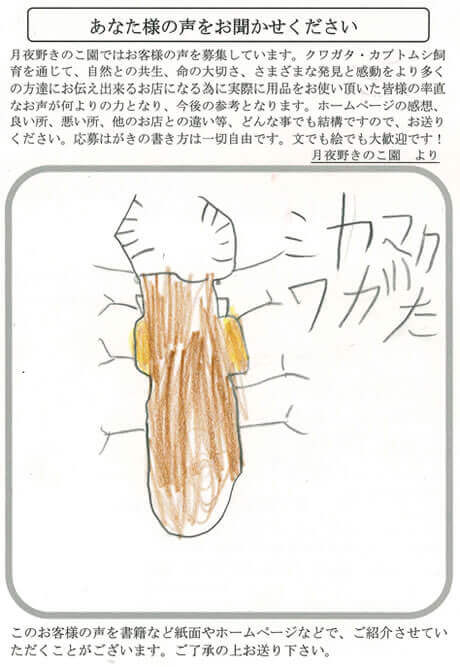 あなた様の声をお聞かせください
月夜野きのこ園ではお客様の声を募集しています。クワガタ・カブトムシ飼
育を通じて、自然との共生、命の大切さ、さまざまな発見と感動をより多く
の方達にお伝え出来るお店になる為に実際に用品をお使い頂いた皆様の率直
なお声が何よりの力となり、今後の参考となります。ホームページの感想、
良い所、悪い所、他のお店との違い等、どんな事でも結構ですので、お送り
ください。応募はがきの書き方は一切自由です。文でも絵でも大歓迎です！
月夜野きのこ園　より
ミカマク
ワガた
このお客様の声を書籍など紙面やホームページなどで、ご紹介させてい
ただくことがございます。ご了承の上お送り下さい。